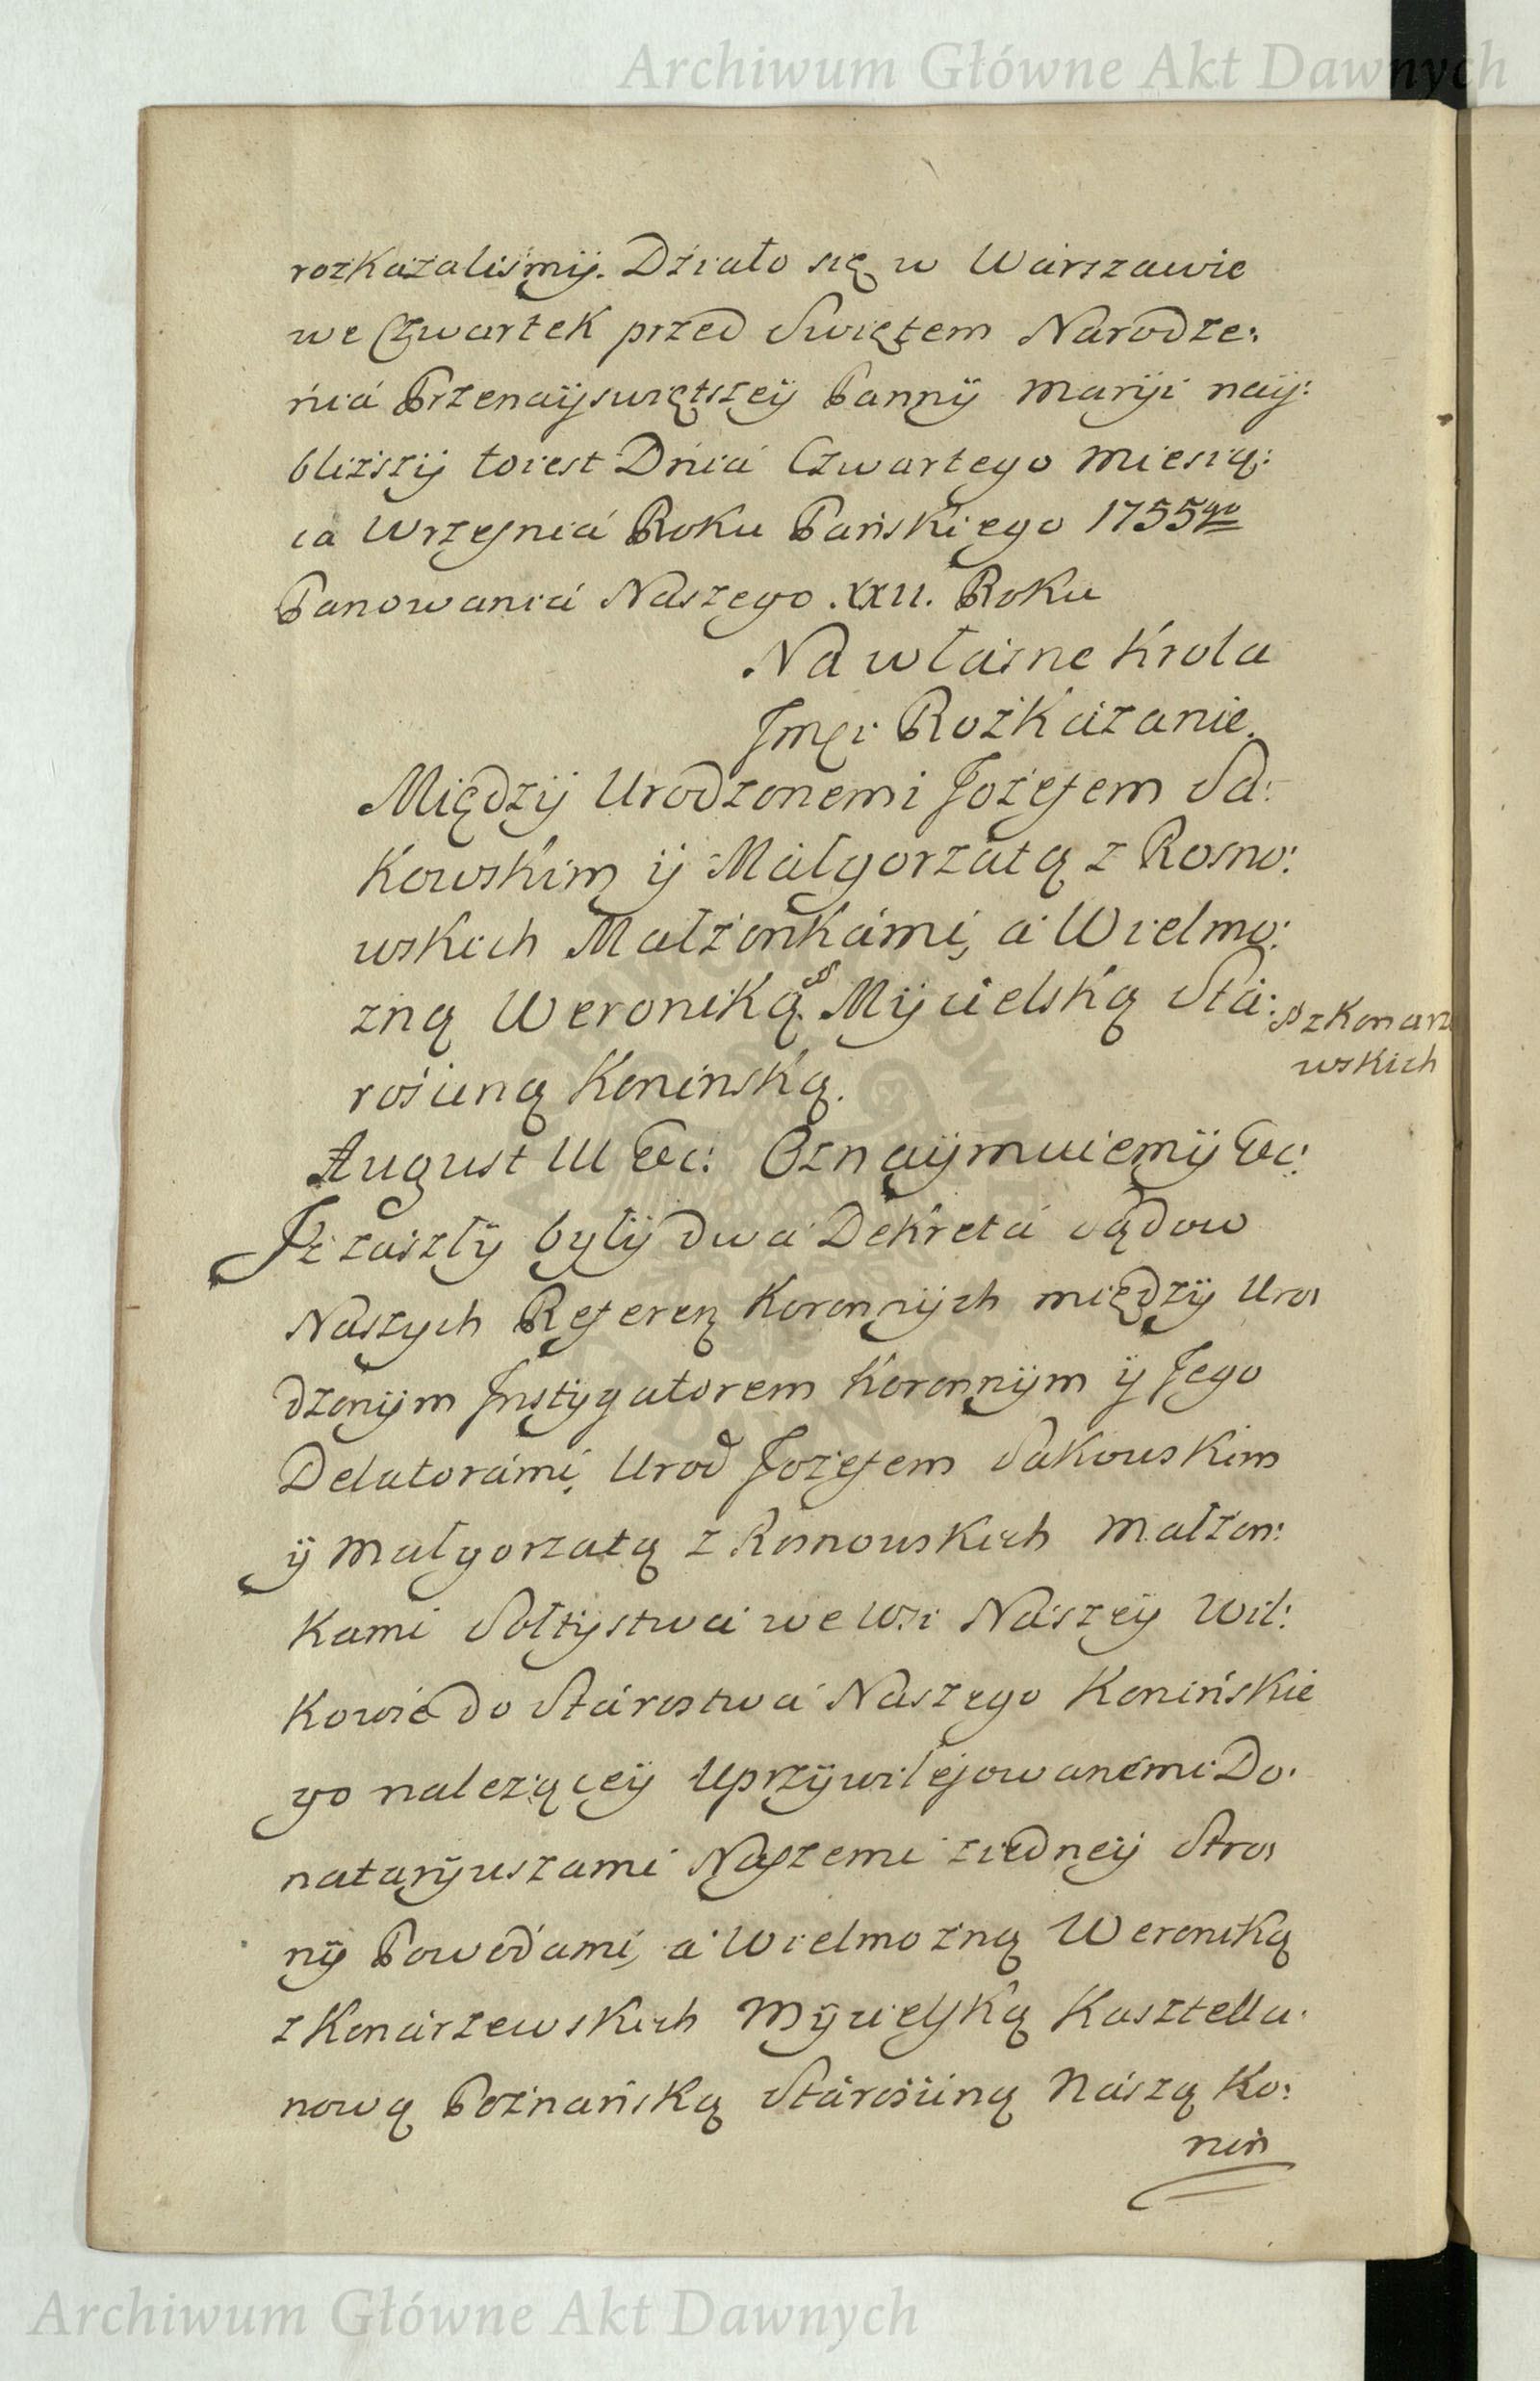 Archiwum Główne Akt Dawnych
rozkazaliśmÿ. Działo się w Warszawie
we Czwartek przed Swiętem Narodze:
niá Przenaÿswiętszeÿ Pannÿ Maryi naÿ:
bliższÿ toiest Dniá Czwartego Miesią:
ca Wrzesniá Roku Pańskiego 1755go
Panowaniá Naszego XXII. Roku
Na własne Krola
Jmci Rozkázanie.
Międzÿ Urodzonemi Jozefem Sa:
kowskim ÿ Małgorzatą z Rosno:
wskich Małżonkámi, á Wielmo:
zną Weroniką Mÿcielską Stá:
z Konarze
wskich
rościną Koninską.
August III &c: Oznaÿmuiemÿ &c:
Jż zaszłÿ bÿłÿ dwa Dekretá sądow
Naszych Referen: Koronnÿch międzÿ Uro:
dzonÿm Instÿgatorem Koronnÿm ÿ Jego
Delatorámi, Urod Jozefem Sakowskim
ÿ Małgorzatą z Rosnowskich Małżon:
kami Sołtÿstwá we Wsi Nászeÿ Wil:
kowie do Stárostwá Naszego Konińskie
go należącеÿ Uprzÿwilejowanemi Do:
natarÿuszami Naszemi ziedneÿ Stro:
nÿ Powodami, á Wielmożną Weroniką
z Konárzewskich Mÿcielską Kasztella:
nową Poznańską Stárościną Nászą Ko:
nin
Archiwum Główne Akt Dawnych